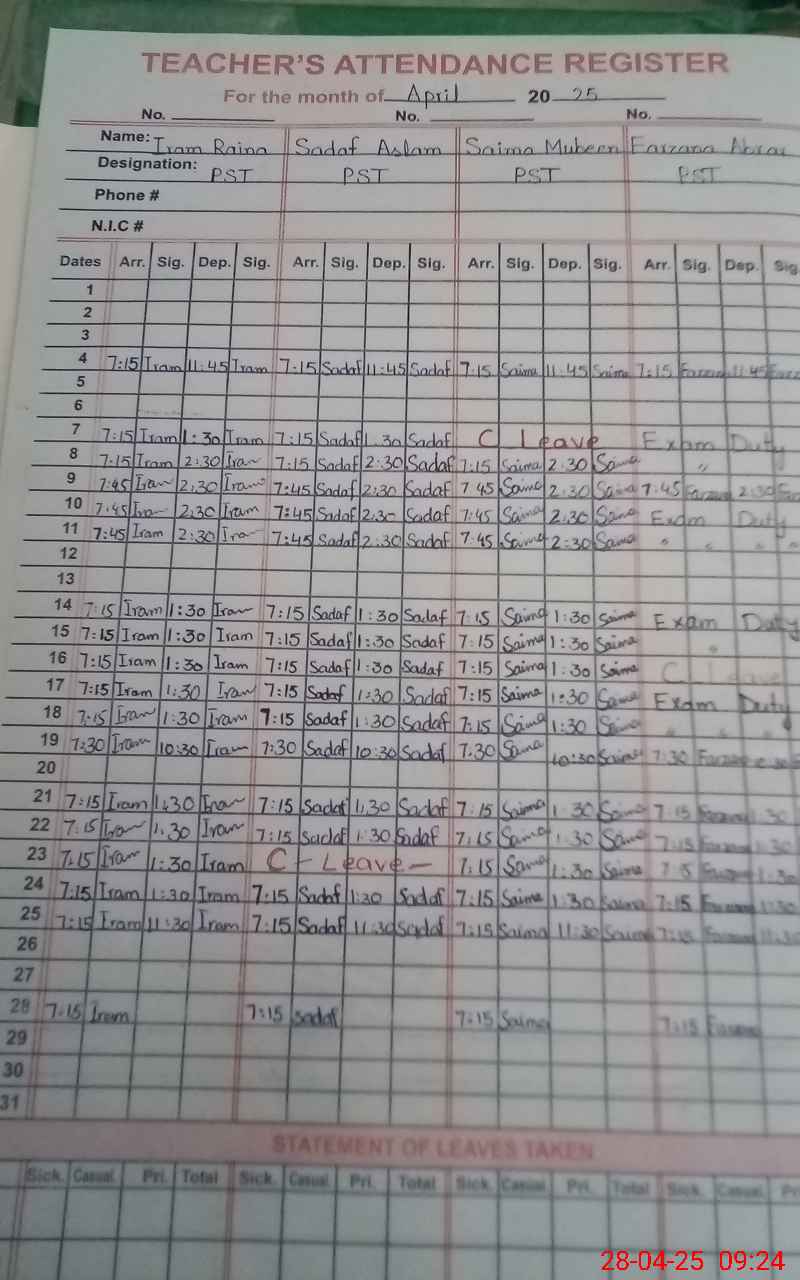 TEACHER'S ATTENDANCE REGISTER
For the month of April 20 25
No. No. No.
Name: Iram Raina Sadaf Aslam Saima Mubeen Farzana
Designation: PST PST PST PST
Phone #
N.I.C #
Dates Arr. Sig. Dep. Sig. Arr. Sig. Dep. Sig. Arr. Sig. Dep. Sig. Arr. Sig. Dep. Sig.
1
2
3
4 7:15 Iram 11:45 Iram 7:15 Sadaf 11:45 Sadaf 7:15 Saima 11:45 Saima 7:15 11:45
5
6
7 7:15 Iram 1:30 Iram 7:15 Sadaf 1.30 Sadaf C Leave Exam Duty
8 7:15 Iram 2:30 Iram 7:15 Sadaf 2:30 Sadaf 7:15 Saima 2:30 Saima "
9 7:45 Iram 2.30 Iram 7:45 Sadaf 2:30 Sadaf 7 45 Saima 2:30 Saima 7:45 2:30
10 7:45 Iram 2.30 Iram 7:45 Sadaf 2.30 Sadaf 7:45 Saima 2.30 Saima Exam Duty
11 7:45 Iram 2:30 Iram 7:45 Sadaf 2:30 Sadaf 7:45 Saima 2:30 Saima " " " "
12
13
14 7:15 Iram 1:30 Iram 7:15 Sadaf 1:30 Sadaf 7:15 Saima 1:30 Saima Exam Duty
15 7:15 Iram 1:30 Iram 7:15 Sadaf 1:30 Sadaf 7:15 Saima 1:30 Saima "
16 7:15 Iram 1:30 Iram 7:15 Sadaf 1:30 Sadaf 7:15 Saima 1:30 Saima C Leave
17 7:15 Iram 1:30 Iram 7:15 Sadaf 1:30 Sadaf 7:15 Saima 1:30 Saima Exam Duty
18 7:15 Iram 1:30 Iram 7:15 Sadaf 1:30 Sadaf 7:15 Saima 1:30 Saima " " " "
19 7:30 Iram 10:30 Iram 7:30 Sadaf 10:30 Sadaf 7.30 Saima 10:30 Saima 7:30
20
21 7:15 Iram 1.30 Iram 7:15 Sadaf 1.30 Sadaf 7:15 Saima 1:30 Saima 7:15 1:30
22 7:15 Iram 1.30 Iram 7:15 Sadaf 1:30 Sadaf 7:15 Saima 1:30 Saima 7:15 1:30
23 7:15 Iram 1:30 Iram C - Leave - 7:15 Saima 1:30 Saima 7:15 1:30
24 7:15 Iram 1:30 Iram 7:15 Sadaf 1:30 Sadaf 7:15 Saima 1:30 Saima 7:15 1:30
25 7:15 Iram 11:30 Iram 7:15 Sadaf 11:30 Sadaf 7:15 Saima 11:30 Saima 7:15 11:30
26
27
28 7:15 Iram 7:15 Sadaf 7:15 Saima 7:15
29
30
31
STATEMENT OF LEAVES TAKEN
Sick. Casual. Pri. Total Sick. Casual. Pri. Total Sick. Casual. Pri. Total Sick. Casual.
28-04-25 09:24